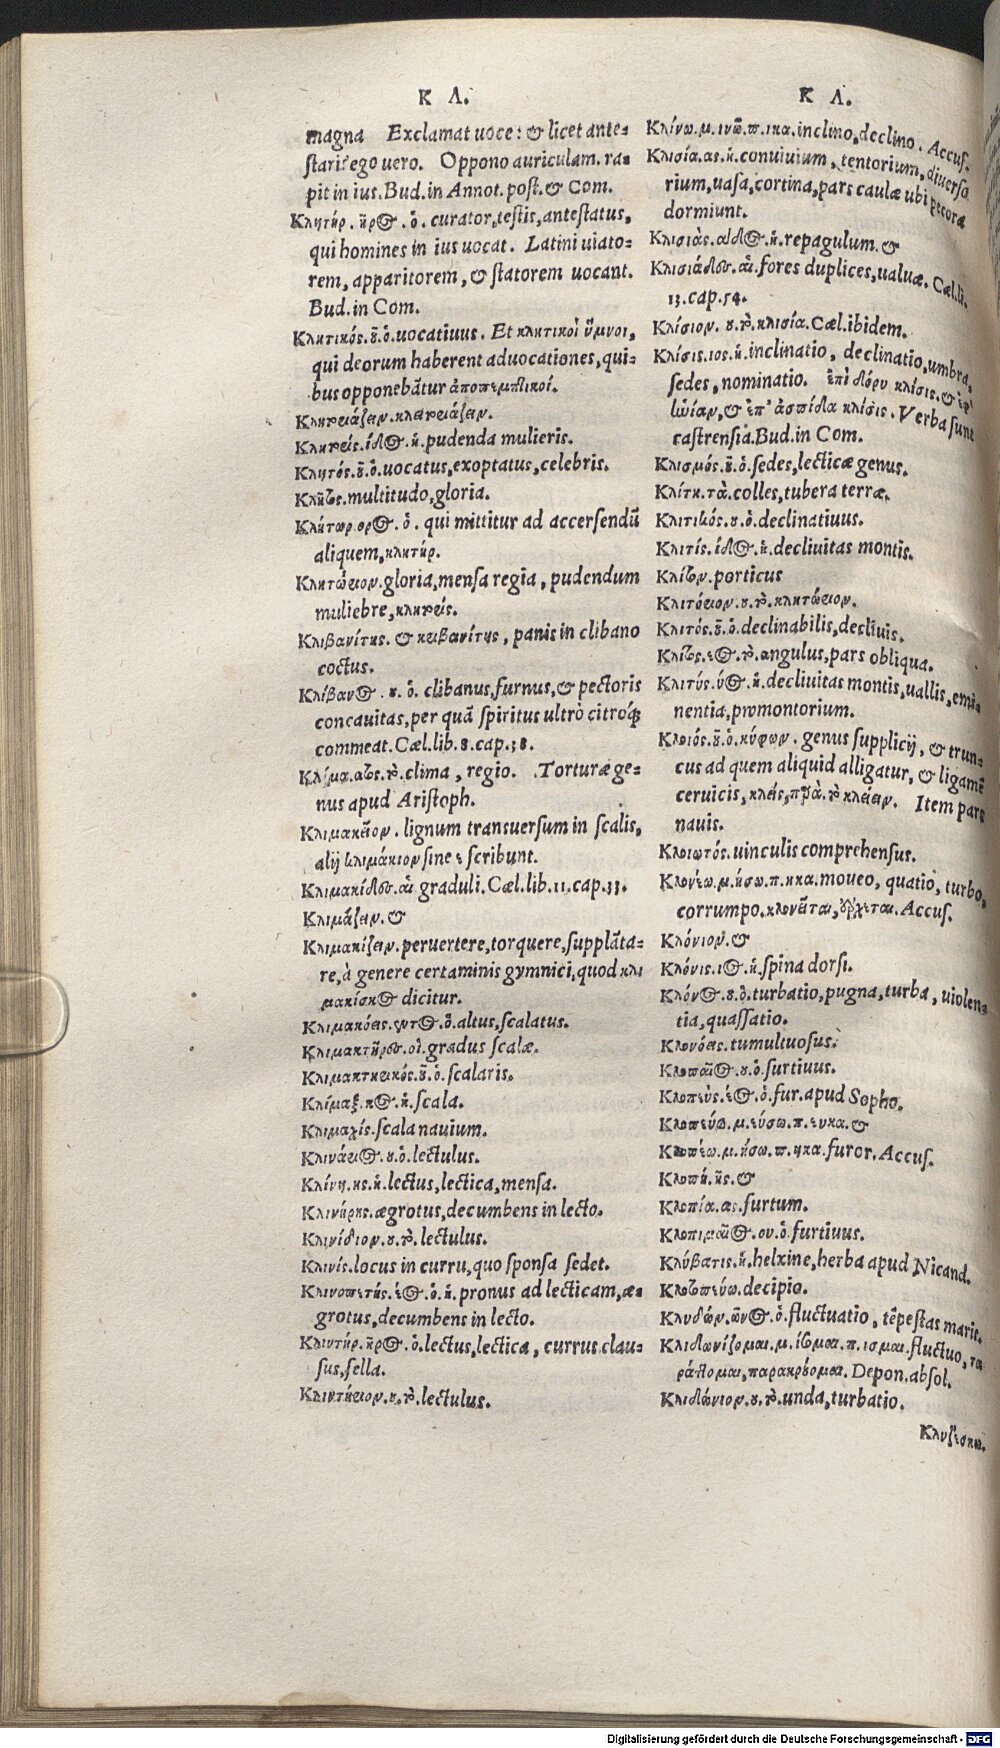 Κ Λ.
magna Exclamat uoce: & licet ante=
stari? ego uero. Oppono auriculam. ra=
pit in ius. Bud. in Annot. post. & Com.
Κλητήρ. ῆρος. ὁ. curator, testis, antestatus,
qui homines in ius uocat. Latini uiato=
rem, apparitorem, & statorem uocant.
Bud. in Com.
Κλητικός. οῦ. ὁ. uocatiuus. Et κλητικοὶ ὕμνοι,
qui deorum haberent aduocationes, qui=
bus opponebātur ἀποπεμπτικοί.
Κληϊς. ίδος. ἡ. pudenda mulieris.
Κλητός. οῦ. ὁ. uocatus, exoptatus, celebris.
multitudo, gloria.
Κλήτωρ. ορος. ὁ. qui mittitur ad accersendū
aliquem, κλητήρ.
Κλητώριον. gloria, mensa regia, pudendum
muliebre,
Κλιβανίτης. & κριβανίτης, panis in clibano
coctus.
Κλίβανος. ου. ὁ. clibanus, furnus, & pectoris
concauitas, per quā spiritus ultrò citróq;
commeat. Cæl. lib. 8. cap. 38.
Κλίμα. ατος. τὸ. clima, regio. Torturæ ge=
nus apud Aristoph.
Κλιμακεῖον. lignum transuersum in scalis,
alij κλιμάκιον sine ε scribunt.
Κλιμακίδες. αἱ graduli. Cæl. lib. 11. cap. 33.
Κλιμάζειν. &
Κλιμακίζειν. peruertere, torquere, supplāta=
re, à genere certaminis gymnici, quod κλι
μακίσκος dicitur.
Κλιμακόεις. εντος. ὁ. altus, scalatus.
Κλιμακτῆρες. οἱ. gradus scalæ.
Κλιμακτηρικός. οῦ. ὁ. scalaris.
Κλίμαξ. κος. ἡ. scala.
Κλιμακίς. scala nauium.
Κλινάριος. ου. ὁ. lectulus.
Κλίνη. ης. ἡ. lectus, lectica, mensa.
Κλινήρης. ægrotus, decumbens in lecto.
Κλινίδιον. ου. τὸ. lectulus.
Κλινίς. locus in curru, quo sponsa sedet.
Κλινοπετής. έος. ὁ. ἡ. pronus ad lecticam, æ=
grotus, decumbens in lecto.
Κλιντήρ. ῆρος. ὁ. lectus, lectica, currus clau=
sus, sella.
Κλιντήριον. ου. τὸ. lectulus.
Κ Λ.
Κλίνω. μ. ινῶ. π. ικα. inclino, declino. Accus.
Κλισία. ας. ἡ. conuiuium, tentorium, diuerso
rium, uasa, cortina, pars caulæ ubi pecora
dormiunt.
Κλισιὰς. άδος. ἡ. repagulum. &
Κλισιάδες. αἱ. fores duplices, ualuæ. Cæl. li.
13. cap. 54.
Κλίσιον. ου. τὸ. κλισία. Cæl. ibidem.
Κλίσις. ιος. ἡ. inclinatio, declinatio, umbra,
sedes, nominatio. ἐπὶ δόρυ κλίσις. & ἐφ'
ἡνίαν, & ἐπ' ἀσπίδα κλίσις. Verba sunt
castrensia. Bud. in Com.
Κλισμός. οῦ. ὁ. sedes, lecticæ genus.
Κλίτη. τὰ. colles, tubera terræ.
Κλιτικός. ου. ὁ. declinatiuus.
Κλιτίς. ίδος. ἡ. decliuitas montis.
Κλίτον. porticus
Κλιτόριον. ου. τὸ. κλητώριον.
Κλιτός. οῦ. ὁ. declinabilis, decliuis.
Κλίτος. εος. τὸ. angulus, pars obliqua.
Κλιτύς. ύος. ἡ. decliuitas montis, uallis, emi=
nentia, promontorium.
Κλοιός. οῦ. ὁ. κύφων. genus supplicij, & trun=
cus ad quem aliquid alligatur, & ligamē
ceruicis, κλείς, παρὰ. τὸ κλείειν. Item pars
nauis.
Κλοιωτός. uinculis comprehensus.
Κλονέω. μ. ήσω. π. ηκα. moueo, quatio, turbo,
corrumpo. κλονεῖται, ἔρχεται. Accus.
Κλόνιον. &
Κλόνις. ιος. ἡ. spina dorsi.
Κλόνος. ου. ὁ. turbatio, pugna, turba, uiolen=
tia, quassatio.
Κλονόεις. tumultuosus.
Κλοπαῖος. ου. ὁ. furtiuus.
Κλοπεὺς. έος. ὁ. fur. apud Sopho.
Κλοπεύω. μ. εύσω. π. ευκα. &
Κλοπέω. μ. ήσω. π. ηκα. furor. Accus.
Κλοπή. ῆς. &
Κλοπία. ας. furtum.
Κλοπιμαῖος. ου. ὁ. furtiuus.
Κλύβατις. ἡ. helxine, herba apud Nicand.
Κλωτοπεύω. decipio.
Κλυδών. ῶνος. ὁ. fluctuatio, tēpestas maris.
Κλυδωνίζομαι. μ. ίσομαι. π. ισμαι. fluctuo, τα
ράττομαι, παρακρούομαι. Depon. absol.
Κλυδώνιον. ου. τὸ. unda, turbatio.
Digitalisierung gefördert durch die Deutsche Forschungsgemeinschaft - DFG